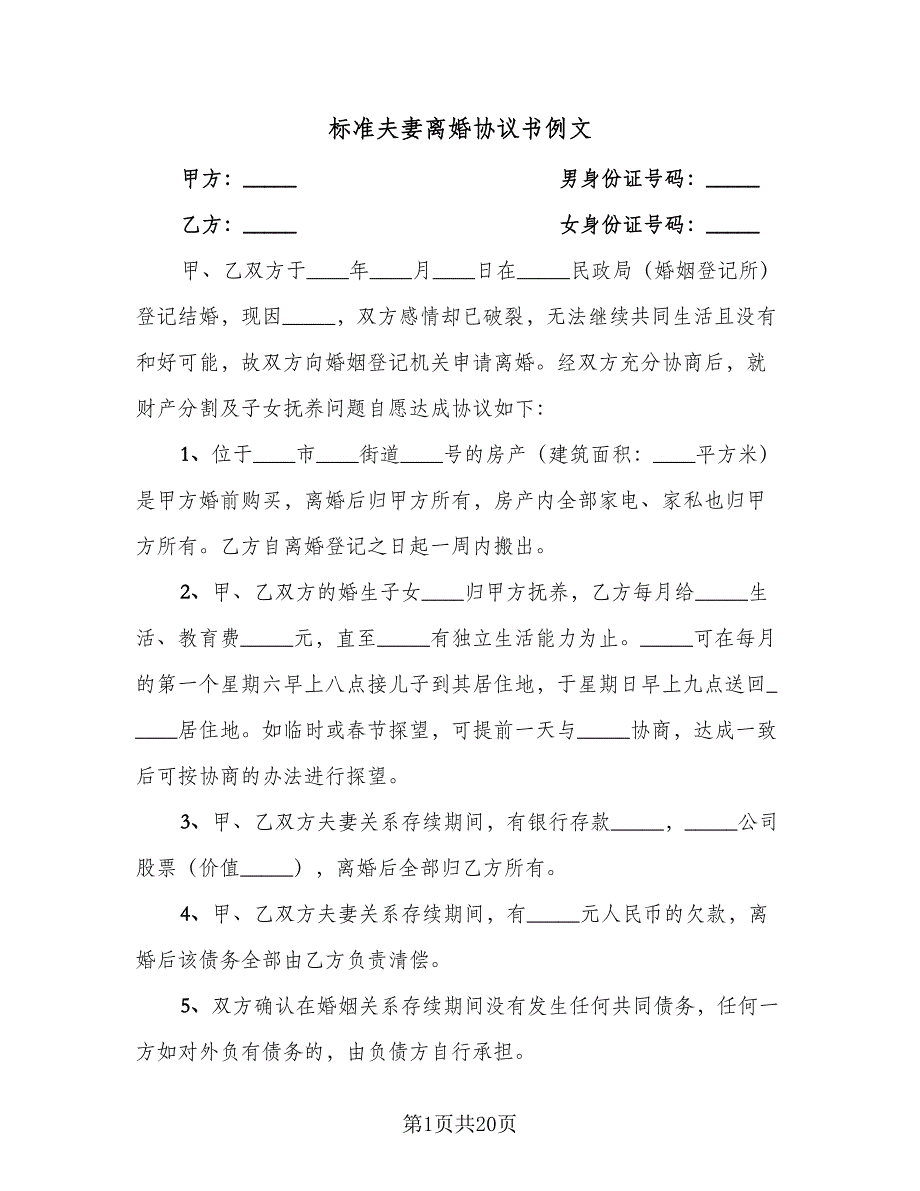 标准夫妻离婚协议书例文
甲方：_____ 男身份证号码：_____
乙方：_____ 女身份证号码：_____
甲、乙双方于____年____月____日在_____民政局（婚姻登记所）
登记结婚，现因_____，双方感情却已破裂，无法继续共同生活且没有
和好可能，故双方向婚姻登记机关申请离婚。经双方充分协商后，就
财产分割及子女抚养问题自愿达成协议如下：
1、位于____市____街道____号的房产（建筑面积：____平方米）
是甲方婚前购买，离婚后归甲方所有，房产内全部家电、家私也归甲
方所有。乙方自离婚登记之日起一周内搬出。
2、甲、乙双方的婚生子女____归甲方抚养，乙方每月给_____生
活、教育费_____元，直至_____有独立生活能力为止。_____可在每月
的第一个星期六早上八点接儿子到其居住地，于星期日早上九点送回_
____居住地。如临时或春节探望，可提前一天与_____协商，达成一致
后可按协商的办法进行探望。
3、甲、乙双方夫妻关系存续期间，有银行存款_____，_____公司
股票（价值_____），离婚后全部归乙方所有。
4、甲、乙双方夫妻关系存续期间，有_____元人民币的欠款，离
婚后该债务全部由乙方负责清偿。
5、双方确认在婚姻关系存续期间没有发生任何共同债务，任何一
方如对外负有债务的，由负债方自行承担。
第1页共20页